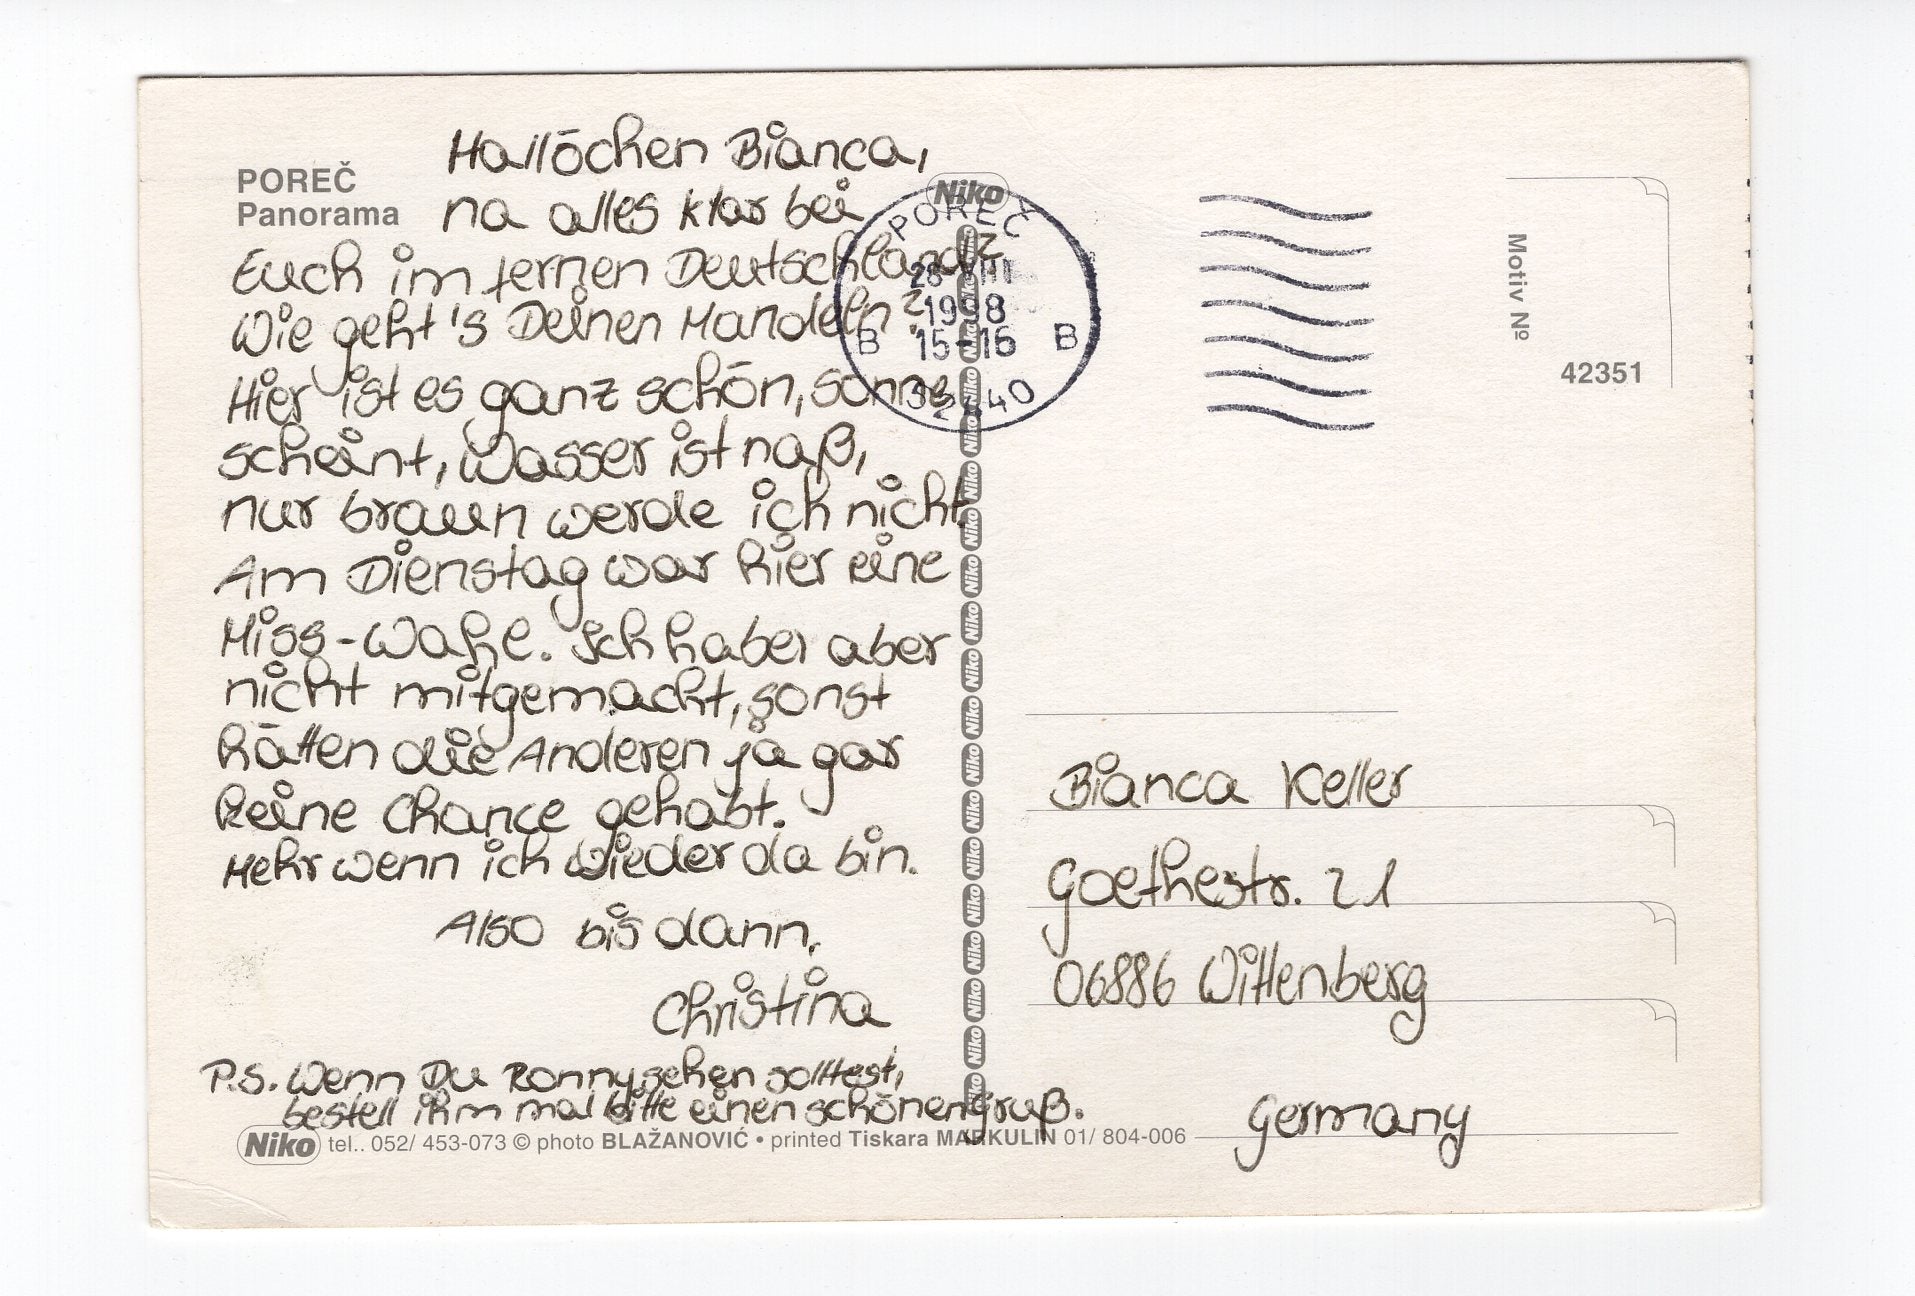 POREČ
Panorama
Hallöchen Bianca,
na alles klar bei
Euch im fernen Deutschland?
Wie geht's Deinen Mandeln?
Hier ist es ganz schön, Sonne
scheint, Wasser ist naß,
nur braun werde ich nicht.
Am Dienstag war hier eine
Miss-Wahl. Ich habe aber
nicht mitgemacht, sonst
hätten die Anderen ja gar
keine Chance gehabt.
Mehr wenn ich wieder da bin.
Also bis dann,
Christina
P.S. Wenn Du Ronny sehen solltest,
bestell ihm mal bitte einen schönen Gruß.
Niko tel.. 052/ 453-073 © photo BLAŽANOVIĆ • printed Tiskara MARKULIN 01/ 804-006
Niko
Niko Niko Niko Niko Niko Niko Niko Niko Niko Niko Niko Niko Niko Niko Niko Niko Niko Niko Niko
POREČ
28 VIII
1998
B 15-16 B
52440
Motiv Nº
42351
Bianca Keller
Goethestr. 21
06886 Wittenberg
Germany